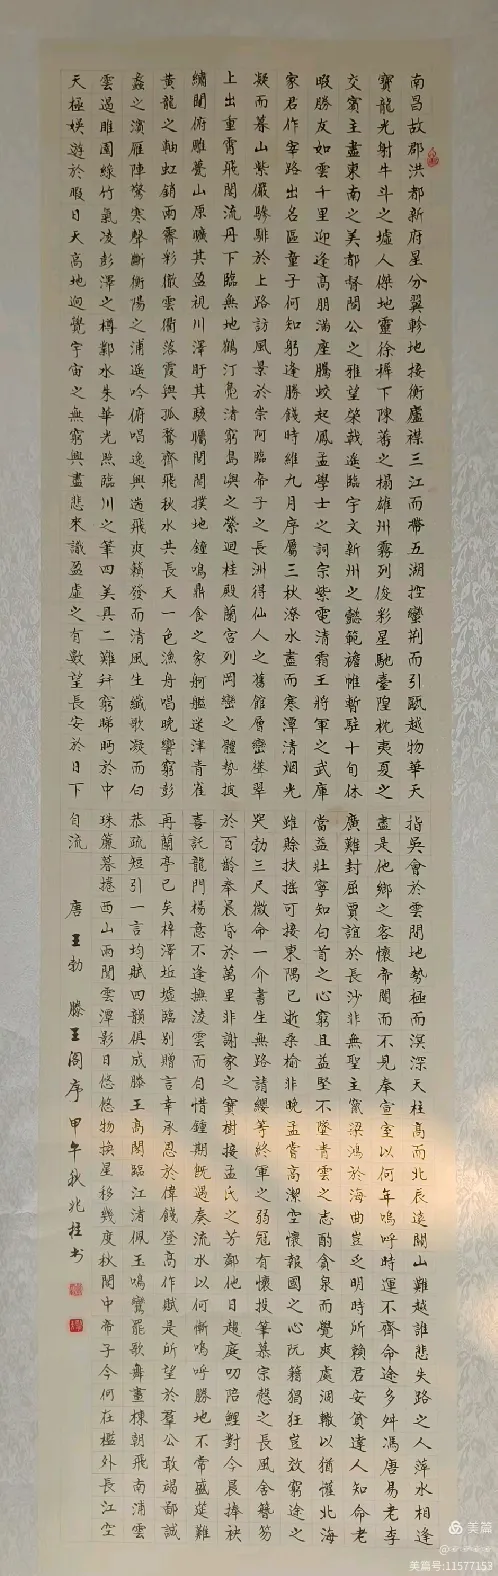 南昌故郡洪都新府星分翼軫地接衡廬襟三江而帶五湖控蠻荊而引甌越物華天
寶龍光射牛斗之墟人傑地靈徐穉下陳蕃之榻雄州霧列俊彩星馳臺隍枕夷夏之
交賓主盡東南之美都督閻公之雅望棨戟遙臨宇文新州之懿範襜帷暫駐十旬休
暇勝友如雲千里迎逢高朋滿座騰蛟起鳳孟學士之詞宗紫電清霜王將軍之武庫
家君作宰路出名區童子何知躬逢勝餞時維九月序屬三秋潦水盡而寒潭清烟光
凝而暮山紫儼驂騑於上路訪風景於崇阿臨帝子之長洲得仙人之舊館層巒聳翠
上出重霄飛閣流丹下臨無地鶴汀鳧渚窮島嶼之縈迴桂殿蘭宮列岡巒之體勢披
繡闥俯雕甍山原曠其盈視川澤盱其駭矚閭閻撲地鐘鳴鼎食之家舸艦迷津青雀
黃龍之軸虹銷雨霽彩徹雲衢落霞與孤鶩齊飛秋水共長天一色漁舟唱晚響窮彭
蠡之濱雁陣驚寒聲斷衡陽之浦遙吟俯唱逸興遄飛爽籟發而清風生纖歌凝而白
雲遏睢園綠竹氣凌彭澤之樽鄴水朱華光照臨川之筆四美具二難并窮睇眄於中
天極娛遊於暇日天高地迥覺宇宙之無窮興盡悲來識盈虛之有數望長安於日下
指吳會於雲間地勢極而溟深天柱高而北辰遠關山難越誰悲失路之人萍水相逢
盡是他鄉之客懷帝閽而不見奉宣室以何年嗚呼時運不齊命途多舛馮唐易老李
廣難封屈賈誼於長沙非無聖主竄梁鴻於海曲豈乏明時所賴君安貧達人知命老
當益壯寧知白首之心窮且益堅不墜青雲之志酌貪泉而覺爽處涸轍以猶懽北海
雖賒扶搖可接東隅已逝桑榆非晚孟嘗高潔空懷報國之心阮籍猖狂豈效窮途之
哭勃三尺微命一介書生無路請纓等終軍之弱冠有懷投筆慕宗愨之長風舍簪笏
於百齡奉晨昏於萬里非謝家之寶樹接孟氏之芳鄰他日趨庭叨陪鯉對今晨捧袂
喜託龍門楊意不逢撫凌雲而自惜鍾期既遇奏流水以何慚嗚呼勝地不常盛筵難
再蘭亭已矣梓澤坵墟臨別贈言幸承恩於偉餞登高作賦是所望於羣公敢竭鄙誠
恭疏短引一言均賦四韻俱成滕王高閣臨江渚佩玉鳴鸞罷歌舞畫棟朝飛南浦雲
珠簾暮捲西山雨閒雲潭影日悠悠物換星移幾度秋閣中帝子今何在檻外長江空
自流
唐王勃滕王閣序甲午秋兆柱书
美篇
美篇号:11577153